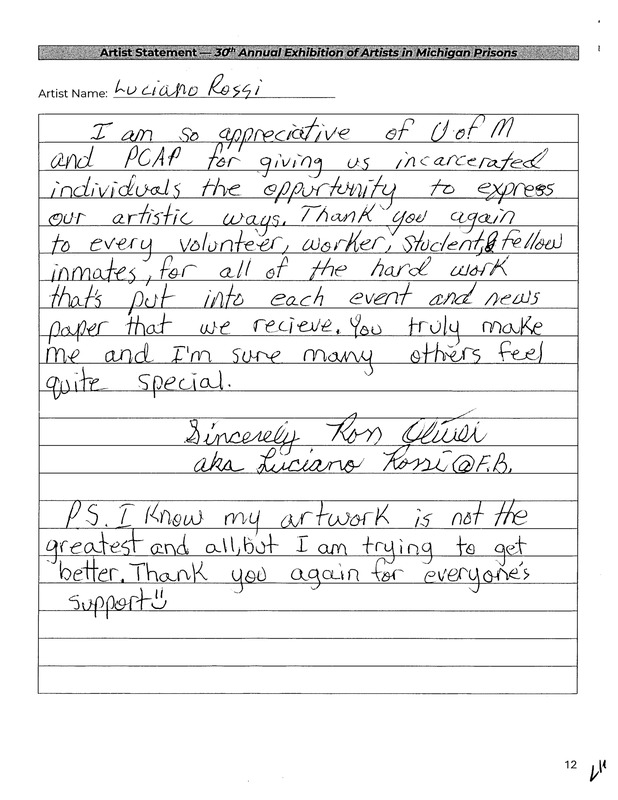 Artist Statement — 30th Annual Exhibition of Artists in Michigan Prisons
Artist Name: Luciano Rossi
I am so appreciative of U of M
and PCAP for giving us incarcerated
individuals the oppurtunity to express
our artistic ways. Thank you again
to every volunteer, worker, student, & fellow
inmates, for all of the hard work
that's put into each event and news
paper that we recieve. You truly make
me and I'm sure many others feel
quite special.
Sincerely Ron
aka Luciano Rossi @ F.B.
P.S. I know my artwork is not the
greatest and all, but I am trying to get
better. Thank you again for everyone's
support!!
12